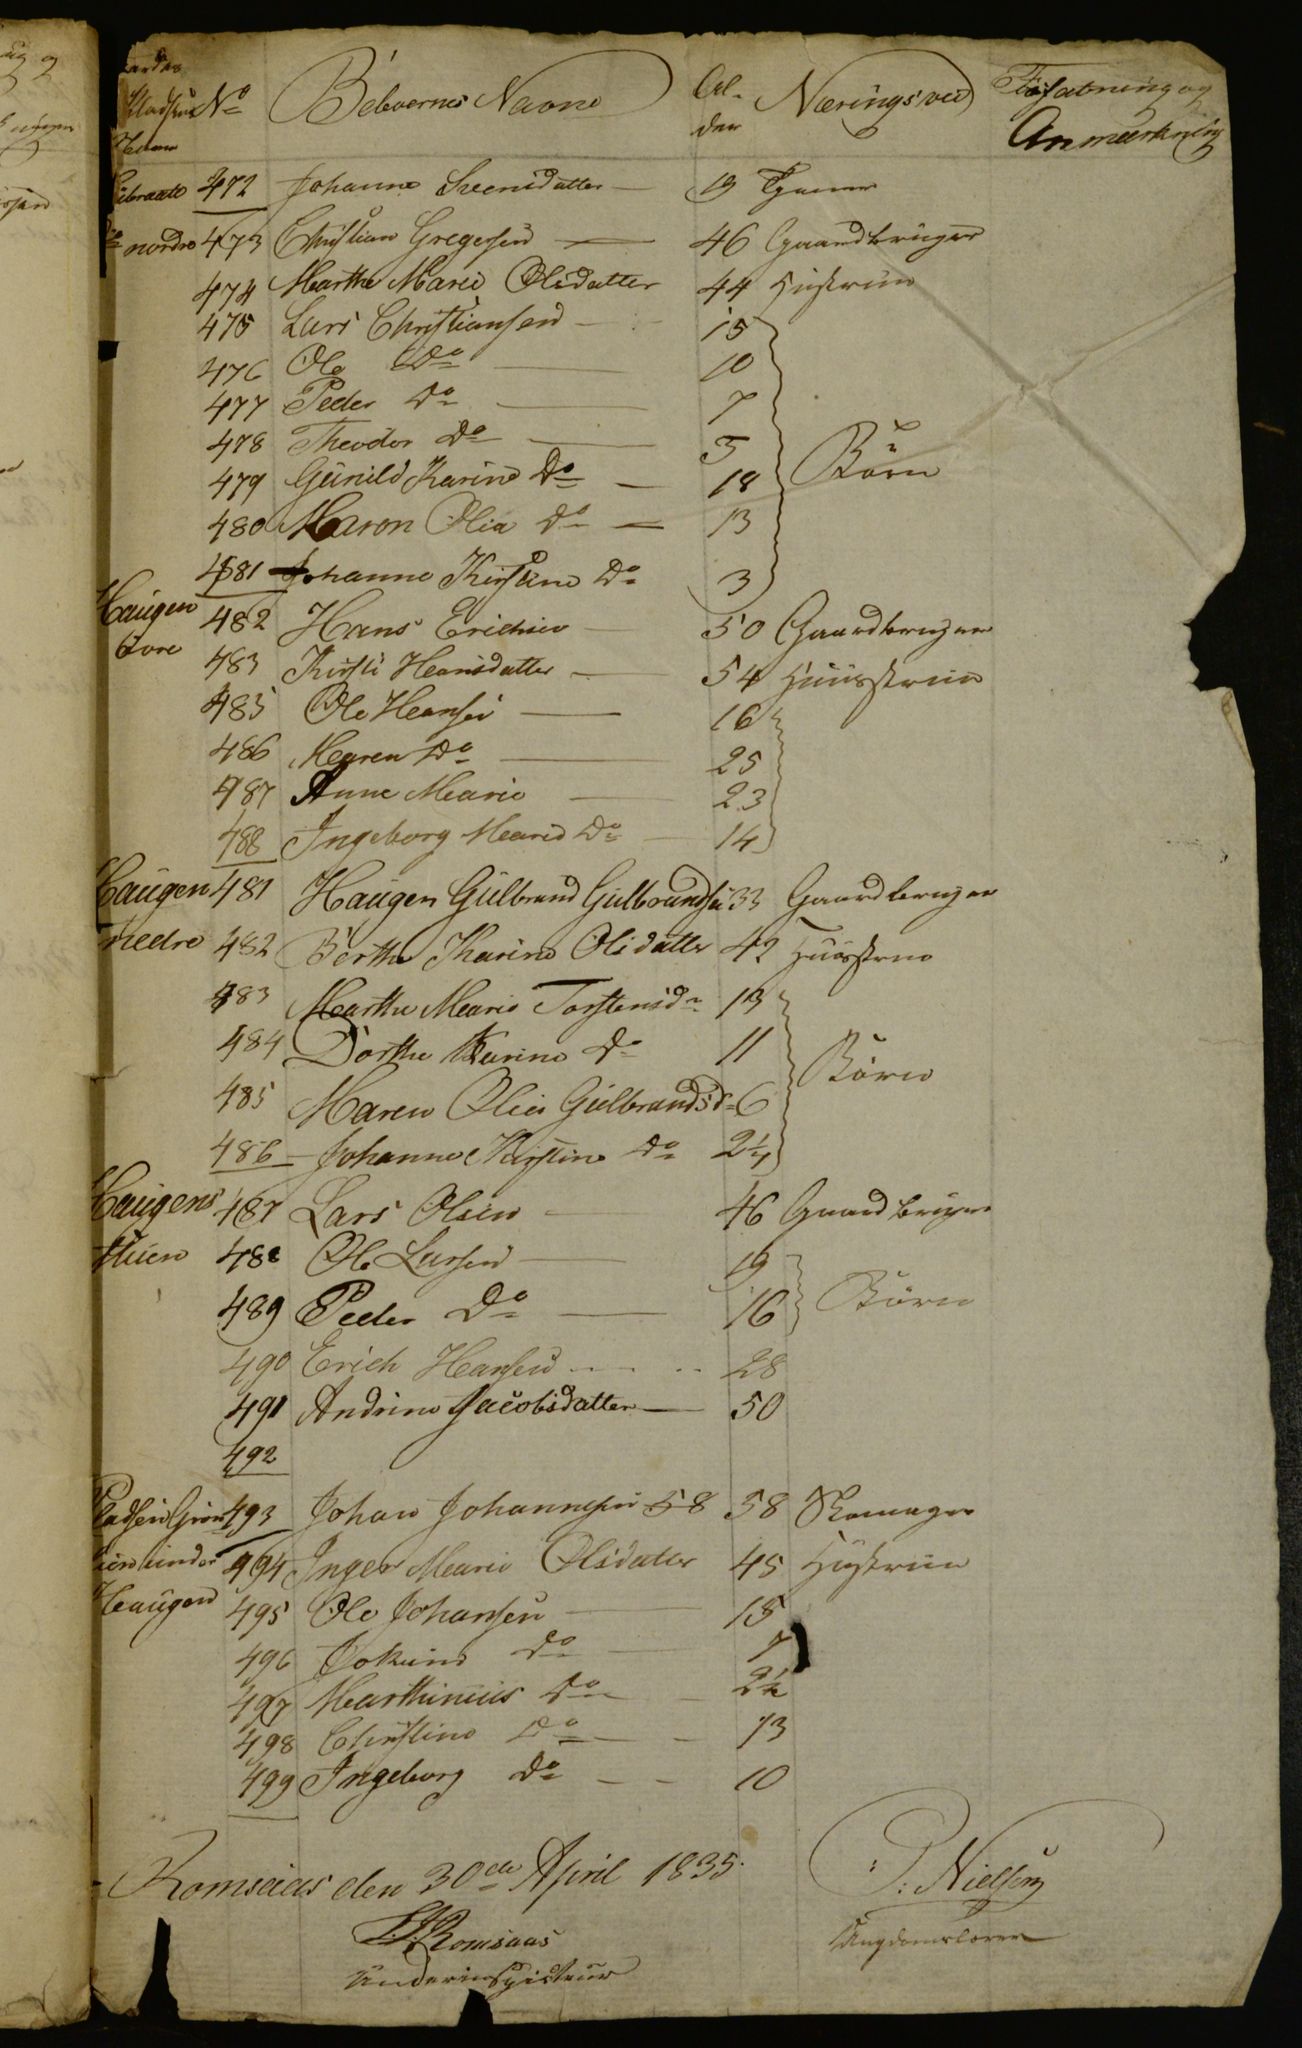 Pladsens No Beboernes Navne Al- Næringsvei Forfatning og
Navn der Anmærkning
472 Johanne Svensdatter 19 Tjener
Do nordre 473 Christian Gregersen 46 Gaardbruger
474 Marthe Marie Olsdatter 44 Hustrue
475 Lars Christiansen 15
476 Ole Do 10
477 Peder Do 7
478 Theodor Do 5
479 Gunild Karine Do 18 Børn
480 Maren Olia Do 13
481 Johanne Kirstine Do 3
Haugen 482 Hans Erichsen 50 Gaardbruger
övre 483 Kirsti Hansdatter 54 Huusstrue
485 Ole Hansen 16
486 Maren Do 25
487 Anne Marie 23
488 Ingeborg Marie Do 14
Haugen 481 Haugen Gulbrand Gulbrandsen 33 Gaardbruger
nedre 482 Berthe Karine Olsdatter 42 Huusstrue
483 Marthe Marie Torstensdr 13
484 Dorthe Karine Do 11 Børn
485 Maren Olia Gulbrandsdr 6
486 Johanne Kirstine Do 2¼
Haugens 487 Lars Olsen 46 Gaardbruger
488 Ole Larsen 19
489 Peder Do 16 Børn
490 Erich Hansen 28
491 Andrine Jacobsdatter 50
492
493 Johan Johannesen 58 58 Skomager
under 494 Inger Marie Olsdater 45 Hustrue
Haugen 495 Ole Johansen 15
496 Jokum Do 7
497 Marthinius Do 2½
498 Christine Do 13
499 Ingeborg Do 10
Romsaas den 30de April 1835. P. Nielsen
Romsaas Ungdomslærer
Underinspecteur